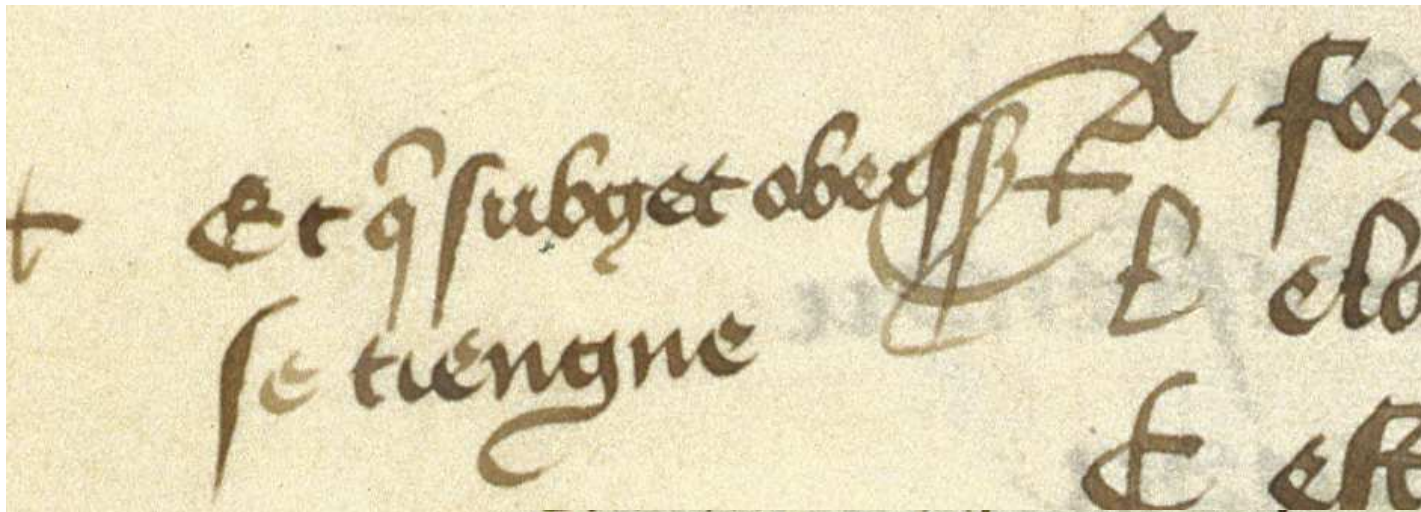 + Et q̃ subget obeiss +
se tiengne
A for
L elo
E est